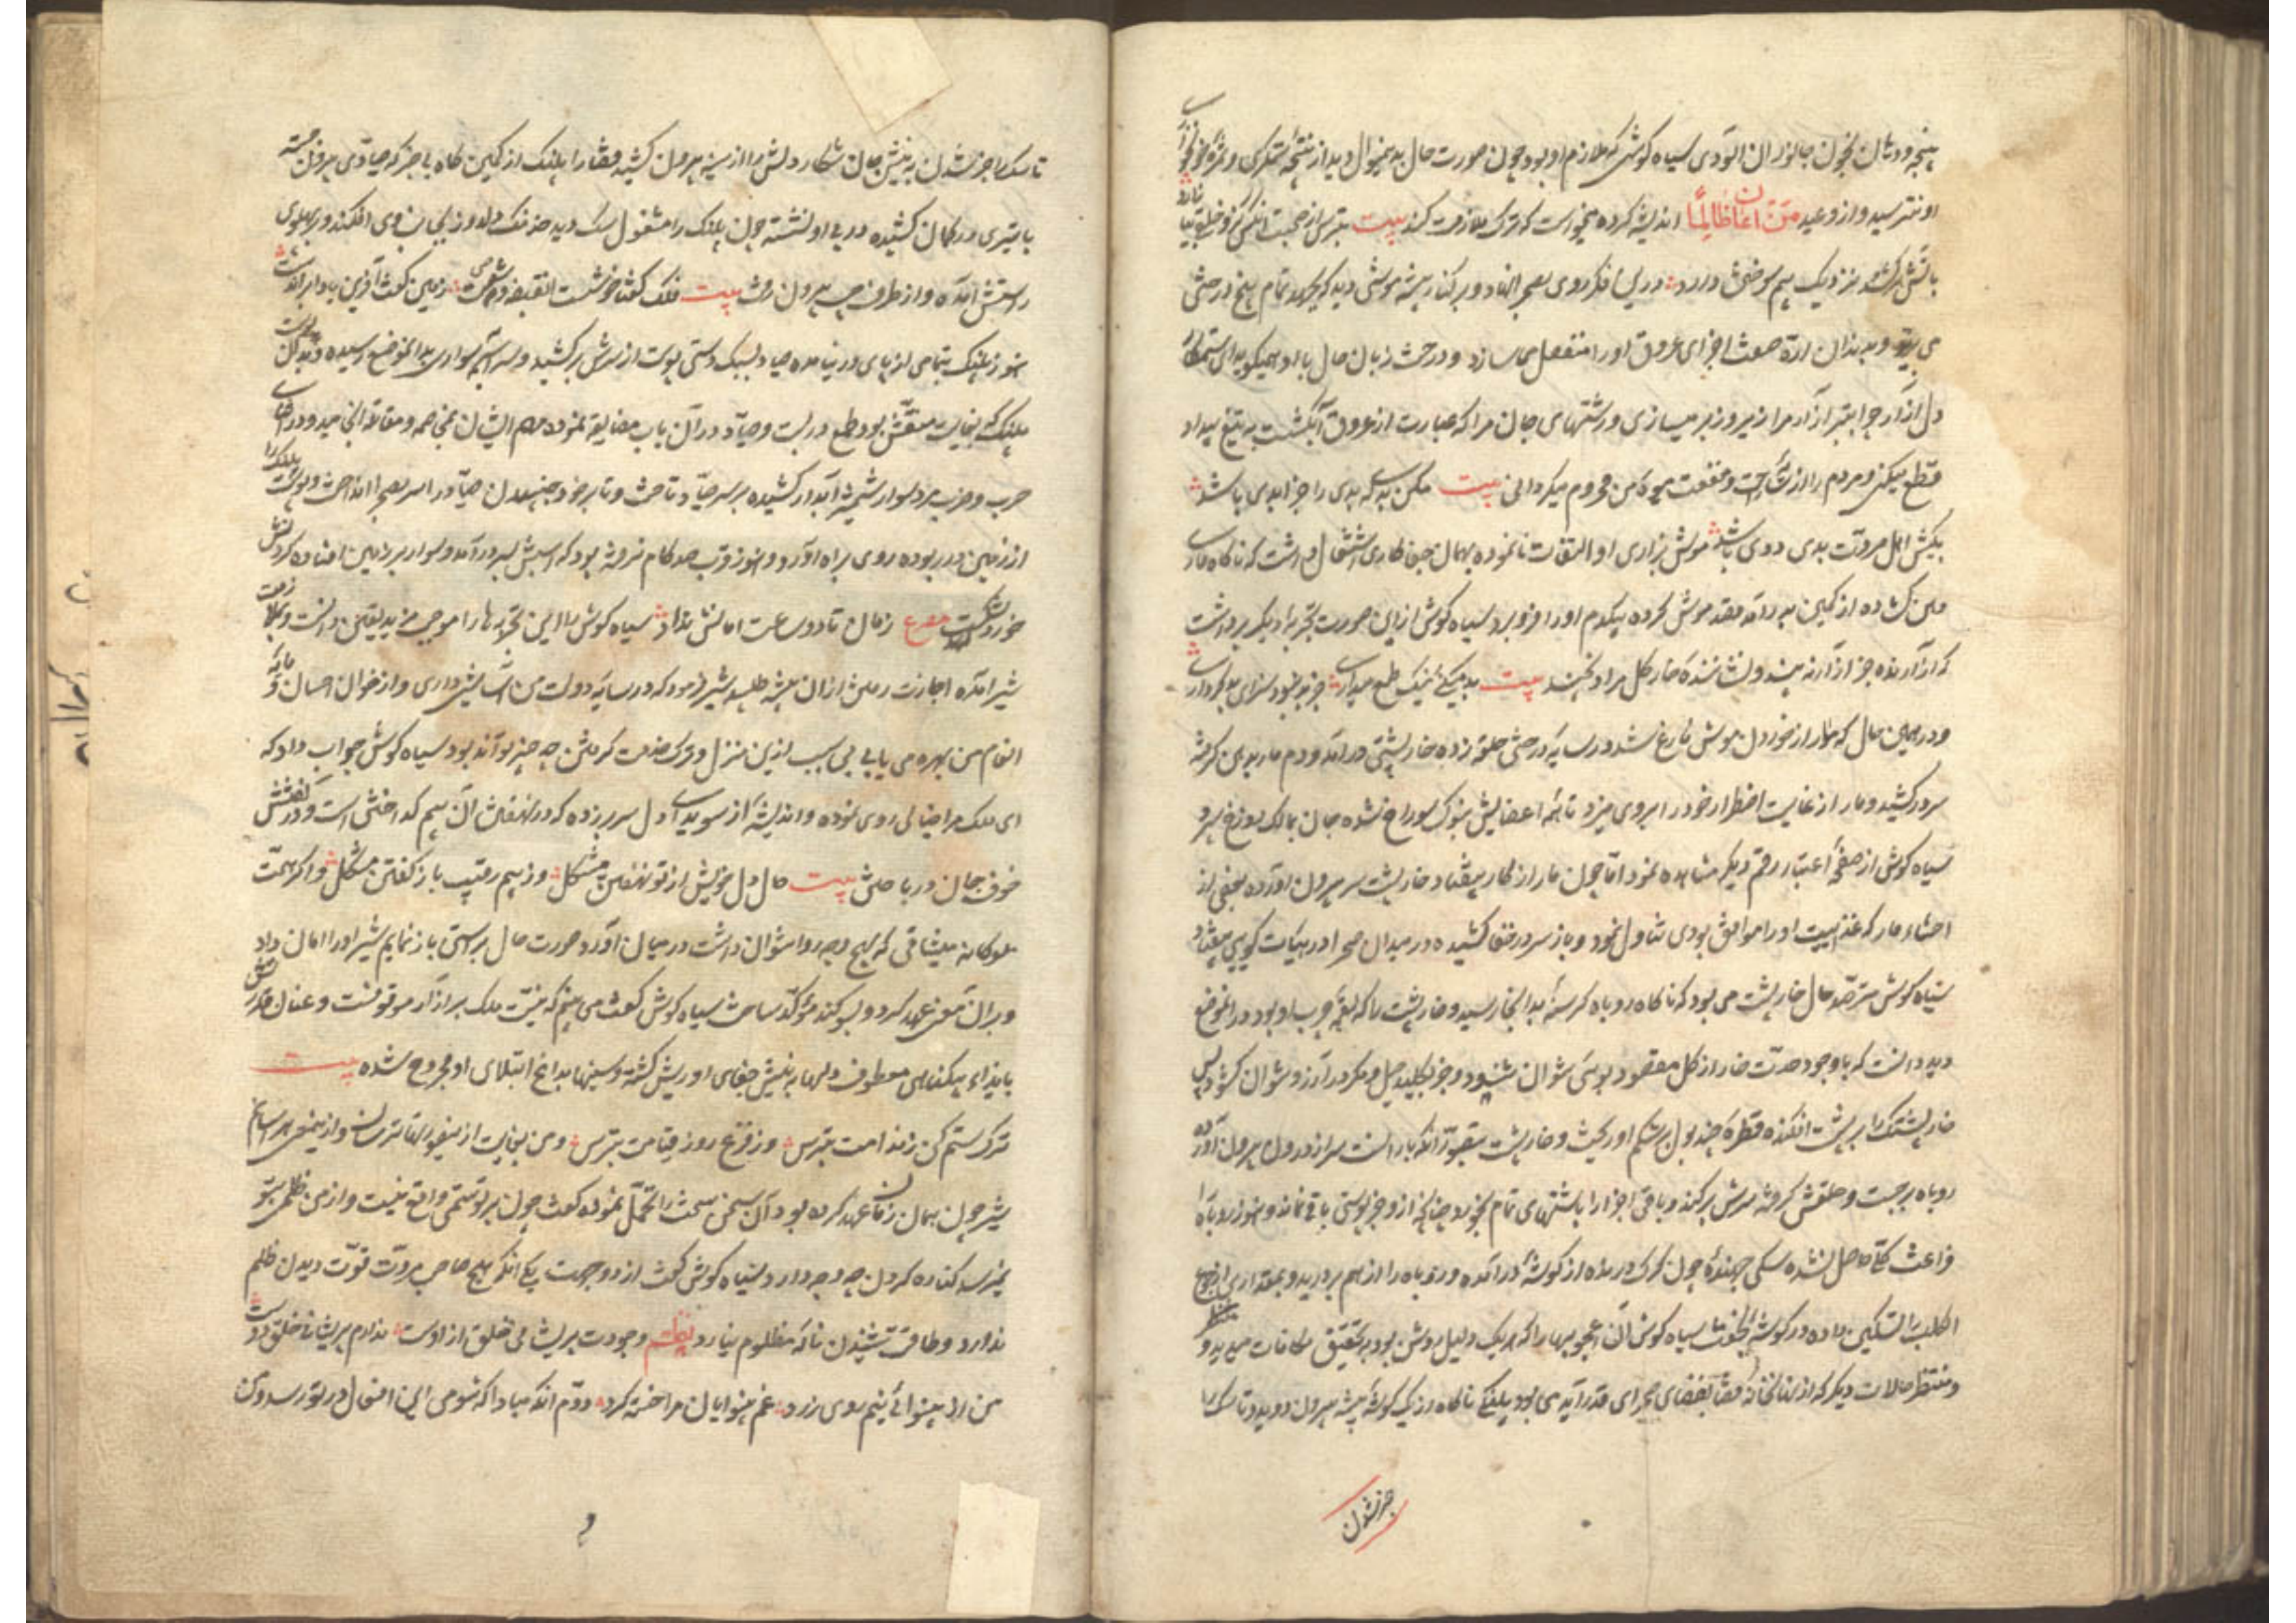 پنجه و دندان بخون جانوران آلودی سیاه گوشی که ملازم او بود چون صورت حال بدین منوال دید از نتیجهٔ ستمکری و ثمرهٔ خونخواری
او بترسید و از وعید من اعان ظالماً اندیشه کرده میخواست که ترک ملازمت کند بیت بترس از صحبت آنکس که خلق
باتش هرکه شد نزدیک بیم سوختن دارد درین فکر روی بصحرا نهاد و بر کنار بیشه موشی دید که بجهد تمام بیخ درختی
می برید و بدندان ارّه صفت اجزای عروق او را منفصل می سازد و درخت زبان حال با او همیگوید ای ستمکار
دل آزار چرا بتبر آزار مرا زیر و زبر میسازی و رشتهای جان مرا که عبارت از عروق آبکش است به تیغ بیداد
قطع میکنی و مردم را از راحت و منفعت میوهٔ من محروم میگردانی بیت مکن بد که بدی را جزا بدی باشد
بکیش اهل مروّت بدی ددی باشد موش بزاری او التفات نانموده بهمان جفاکاری اشتغال داشت که ناگاه ماری
دهن کشاده از کمین بدر آمد و قصد موش کرده بیکدم او را فرو برد سیاه گوش ازین صورت تجربهٔ دیگر برداشت
که آزارنده جز آزار نبیند و نشانندهٔ خار گل مراد نچیند بیت بد میکنی و نیک طمع میداری جز بد نبود سزای بدکرداری
و در همین حال که مار از خوردن موش فارغ شد در سایهٔ درختی حلقه زده خارپشتی درآمد و دم مار بدهن گرفته
سر درکشید و مار از غایت اضطرار خود را بر وی میزد تا همه اعضایش بنوک سوراخ شده جان بمالک دوزخ سپرد
سیاه گوش از صفحهٔ اعتبار رقم دیگر مشاهده نمود امّا چون مار از کار بیفتاد خارپشت سر بیرون آورده بعضی از
احشاء مار که غذائیت او را موافق بودی تناول نمود و باز سر در نقاب کشیده در میدان صحرا در هیات گویی بیفتاد
سیاه گوش مترصد حال خارپشت می بود که ناگاه روباه گرسنه بدانجا رسید و خارپشت را که لقمهٔ چرب او بود در آن موضع
دید دانست که با وجود حدّت خار از گل مقصود بوئی نتوان شنید و جز بکلید حیل و مکر در آرزو نتوان کشود پس
خارپشتک را بر پشت افکنده قطرهٔ چند بول بر شکم او ریخت و خارپشت بتصوّر آنکه باران است سر از درون بیرون آورد
روباه برجست و حلقش گرفته سرش برکند و باقی اجزا را باشتهای تمام بخورد چنانکه ازو جز پوستی باقی نماند و هنوز روباه را
فراغت کلّی حاصل نشده سگی جهنده چون گرگ درنده از گوشهٔ درآمده و روباه را از هم بردرید و بمقداری از وی جوع
الکلب را تسکین داده در گوشهٔ بخفت سیاه گوش آن اعجوبها را که هر یک دلیل روشن بود بر تحقیق مکافات میدید و
و منتظر حالات دیگر که از نهانخانهٔ قضا بفضای صحرای قدر آید می بود پلنگی ناگاه از یک گوشهٔ بیشه بیرون دوید و تا سگ را
خبر شدن
تا سگ را خبر شدن به نیش جان شکار دلش را از سینه بیرون کشید قضا را پلنگ از کمین گاه بی خبر که صیّادی بیرون جسته
با تیری در کمان کشیده در پی او نشسته چون پلنگ را مشغول سگ دید خدنگ دلدوز بجانب وی افکند و بر پهلوی
راستش آمده و از طرف چپ بیرون رفت بیت فلک گفتا زمین گفت آفرین باد
هنوز پلنگ بتمامی از پای درنیامده صیاد بسبک دستی پوست از سرش برکشید و سواری بدان موضع رسیده و به آن
پلنگ که بغایت منقّش بود طمع دربست و صیّاد در آن باب مضایقه نموده مهم ایشان بمخاصمه و مقاتله انجامید و در
حرب و ضرب مرد سوار شمشیر آبدار کشیده بر سر صیّاد تاخت و تا بر خود جنبیدن صیّاد را سر بصحرا انداخت و پوست پلنگ را
از زمین در ربوده روی براه آورد و هنوز قرب صد گام نرفته بود که اسبش بسر درآمد و سوار بر زمین افتاده گردنش
خورد شکست مصرع زمان تا دو ساعت امانش نداد سیاه گوش را این تجربه ها را موجب مزید یقین دانست و بملازمت
شیر آمده اجازت رفتن از آن بیشه طلبید شیر فرمود که در سایهٔ دولت من آسایش داری و از خوان احسان و مایدهٔ
انعام من بهره می یابی بی سبب ازین منزل و ترک خدمت کردن چه چیز تواند بود سیاه گوش جواب داد که
ای ملک مرا خیالی روی نموده و اندیشهٔ از سویدای دل سر بر زده که در نهفتن آن بیم گداختن است و در گفتنش
خوف جان در باختن بیت حال دل خویش از تو نهفتن مشکل وز بیم رقیب باز گفتن مشکل و اگر همّت
ملوکانه میثاقی که بهیچ وجه روا نتوان داشت در میان آورد صورت حال براستی باز نمایم شیر او را امان داد
و بران معنی عهد کرد و بسوگند مؤکّد ساخت سیاه گوش گفت می بینم که نیّت ملک بر آزار موقوفست و عنان
بایذاء بیکناهان معطوف دلها به نیش جفای او ریش گشته و سینها بداغ ابتلای او مجروح شده بیت
ترک ستم کن ز ندامت بترس وز فزع روز قیامت بترس و من بغایت ترسان و ازین معنی هراسانم
شیر چون بهمان زمان عهد کرده بود آن سخن سخت را تحمّل نموده گفت چون بر تو ستمی واقع نیست و از من ظلمی بتو
نمیرسد کناره کردن چه وجه دارد سیاه گوش گفت از دو جهت یکی آنکه هیچ صاحب مروّت قوّت دیدن ظلم
ندارد و طاقت شنیدن نالهٔ مظلوم نیارد نظم وجودت پریشانی خلق ازوست ندارم پریشانی خلق دوست
من از بینوائی نیم روی زرد غم بینوایان مرا خسته کرد دوّم آنکه مباداکه شومی این افعال در تو رسد و من